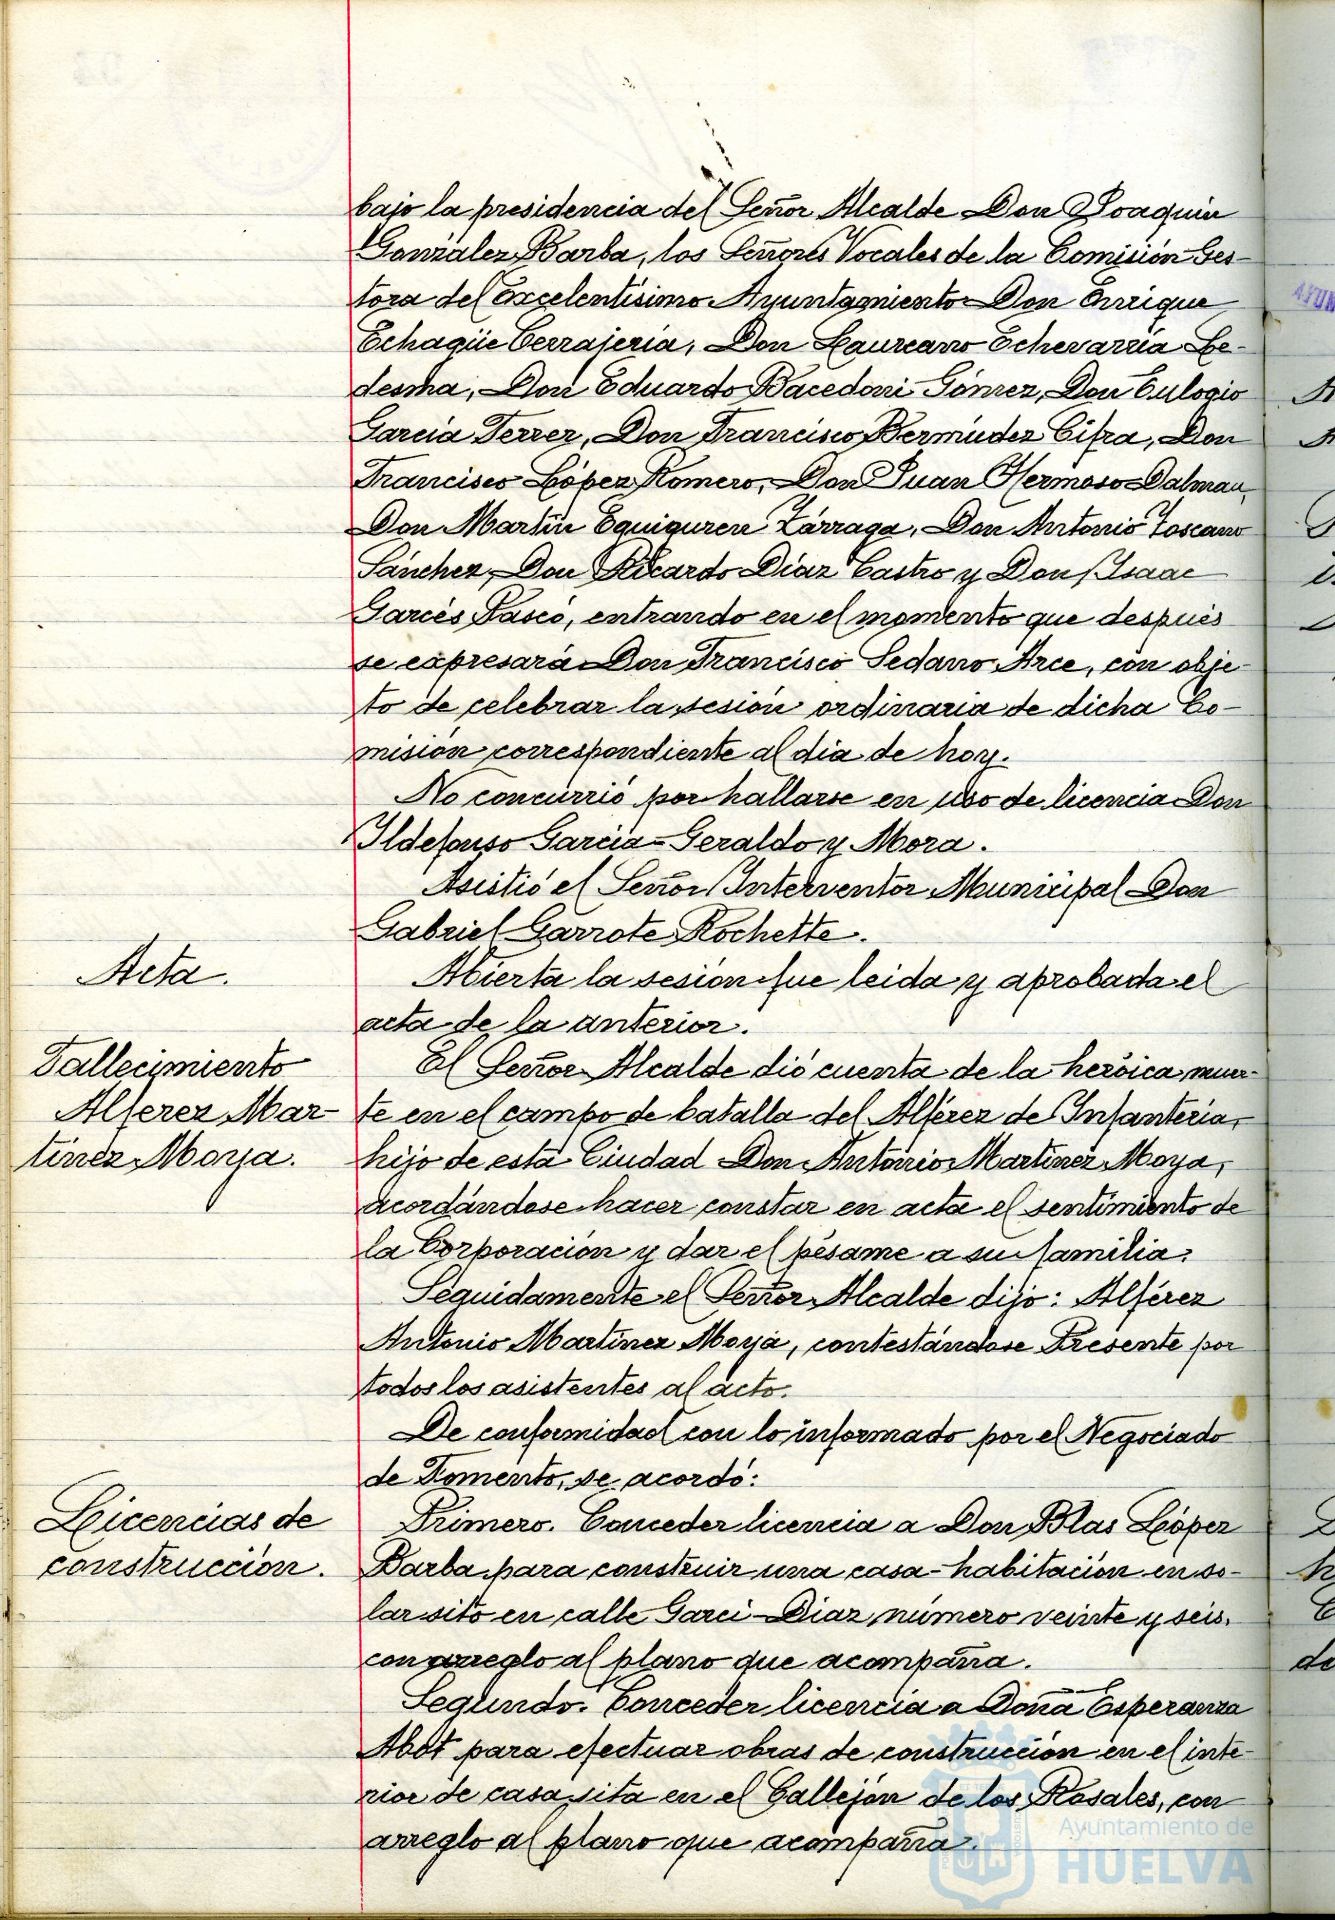 bajo la presidencia del Señor Alcalde Don Joaquín
González Barba, los Señores Vocales de la Comisión Ges-
tora del Excelentísimo Ayuntamiento Don Enrique
Echagüe Cerrajería, Don Laureano Echevarría Le-
desma, Don Eduardo Bacedoni Gómez, Don Eulogio
García Ferrer, Don Francisco Bermúdez Cifra, Don
Francisco López Romero, Don Juan Hermoso Dalmau,
Don Martín Eguiguren Zárraga, Don Antonio Toscano
Sánchez, Don Ricardo Díaz Castro y Don Isaac
Garcés Pascó, entrando en el momento que después
se expresará Don Francisco Sedano Arce, con obje-
to de celebrar la sesión ordinaria de dicha Co-
misión correspondiente al dia de hoy.
No concurrió por hallarse en uso de licencia Don
Ildefonso García-Geraldo y Mora.
Asistió el Señor Interventor Municipal Don
Gabriel Garrote Rochette.
Acta.
Abierta la sesión fue leida y aprobada el
acta de la anterior.
Fallecimiento
Alferez Mar-
tinez Moya.
El Señor Alcalde dió cuenta de la heróica muer-
te en el campo de batalla del Alférez de Infantería,
hijo de esta Ciudad Don Antonio Martínez Moya,
acordándose hacer constar en acta el sentimiento de
la Corporación y dar el pésame a su familia.
Seguidamente el Señor Alcalde dijo: Alférez
Antonio Martínez Moya, contestándose Presente por
todos los asistentes al acto.
De conformidad con lo informado por el Negociado
de Fomento, se acordó:
Licencias de
construcción.
Primero. Conceder licencia a Don Blas López
Barba para construir una casa-habitación en so-
lar sito en calle Garci-Diaz número veinte y seis,
con arreglo al plano que acompaña.
Segundo. Conceder licencia a Doña Esperanza
Abot para efectuar obras de construcción en el inte-
rior de casa sita en el Callejón de los Rosales, con
arreglo al plano que acompaña.
Ayuntamiento de
HUELVA